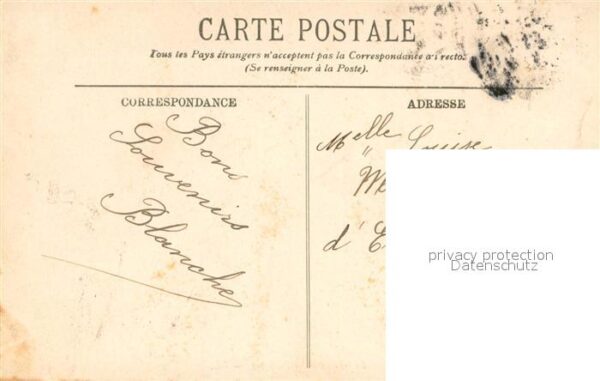 CARTE POSTALE
Tous les Pays étrangers n'acceptent pas la Correspondance au recto.
(Se renseigner à la Poste).
CORRESPONDANCE
ADRESSE
Bons
Souvenirs
Blanche
Melle Louise
d'E
privacy protection
Datenschutz